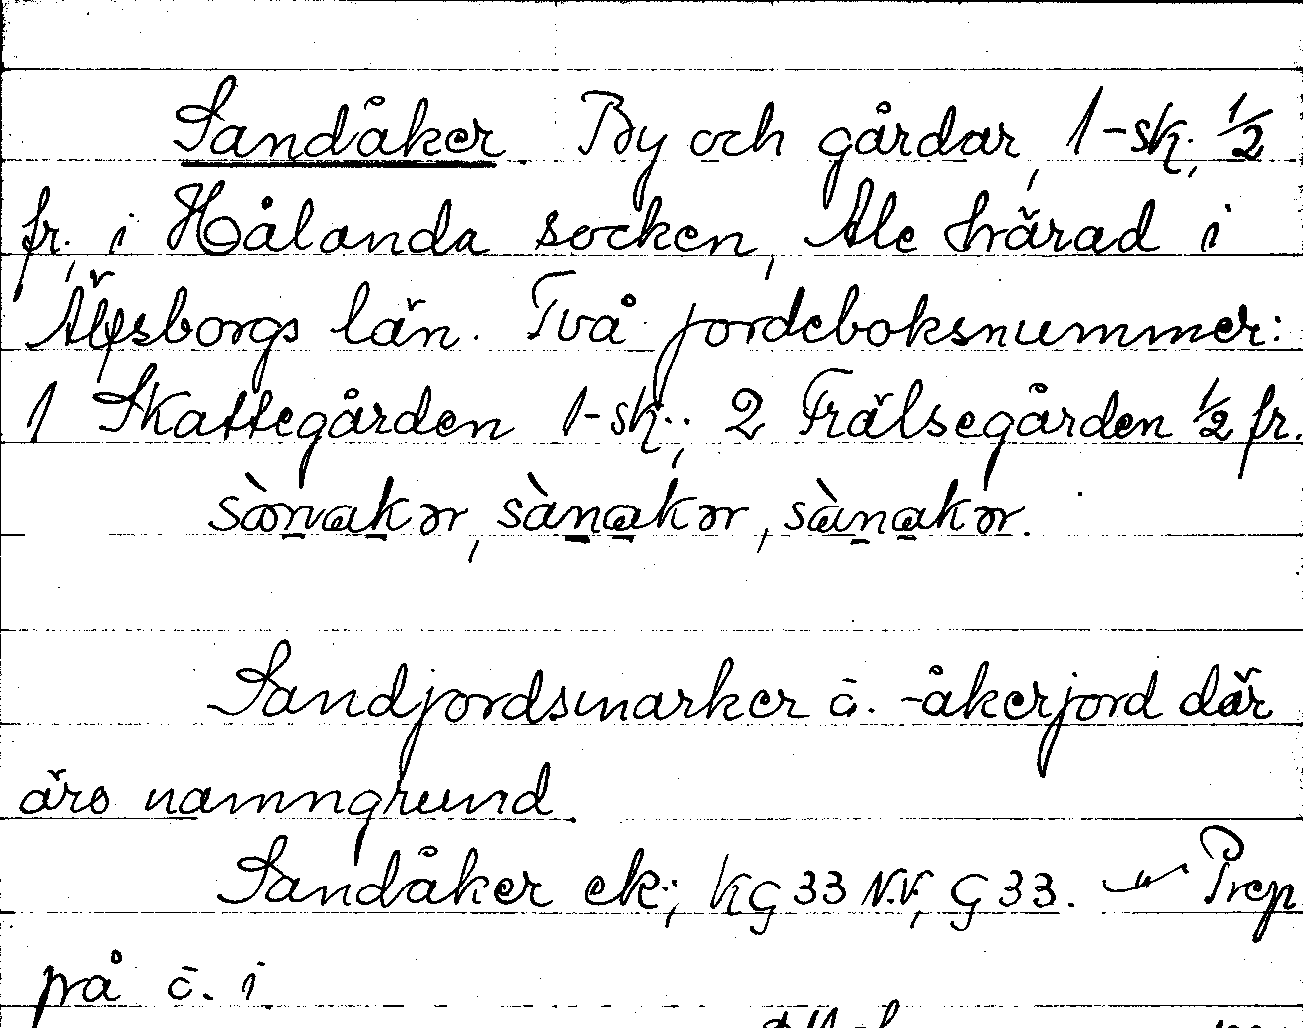 Sandåker. By och gårdar, 1-sk., 1/2
fr., i Hålanda socken, Ale härad i
Älfsborgs län. Två jordeboksnummer:
1 Skattegården 1-sk.; 2 Frälsegården 1/2 fr.
Sandjordsmarker o. -åkerjord där
äro namngrund.
Sandåker ek.; KG 33 N.V, G 33. Prep
på o. i